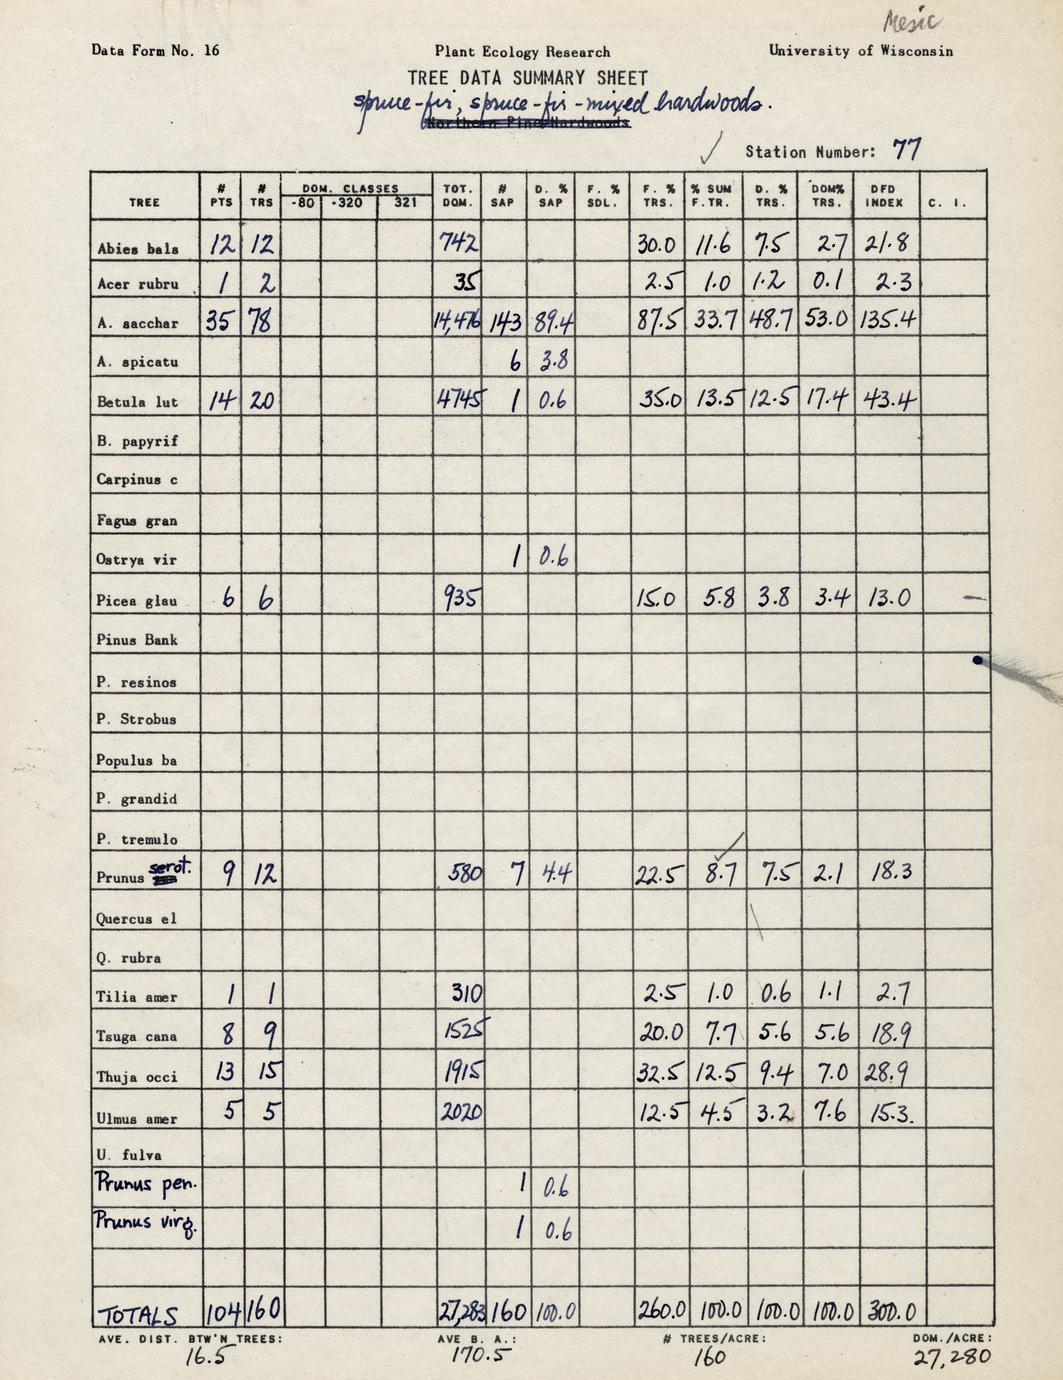 Mesic
Data Form No. 16 Plant Ecology Research University of Wisconsin
TREE DATA SUMMARY SHEET
spruce-fir, spruce-fir-mixed hardwoods.
Northern Pine Hardwoods
Station Number: 77
TREE # PTS # TRS DOM. CLASSES -80 -320 321 TOT. DOM. # SAP D. % SAP F. % SDL. F. % TRS. % SUM F. TR. D. % TRS. DOM% TRS. DFD INDEX C. I.
Abies bals 12 12 742 30.0 11.6 7.5 2.7 21.8
Acer rubru 1 2 35 2.5 1.0 1.2 0.1 2.3
A. sacchar 35 78 14,476 143 89.4 87.5 33.7 48.7 53.0 135.4
A. spicatu 6 3.8
Betula lut 14 20 4745 1 0.6 35.0 13.5 12.5 17.4 43.4
B. papyrif
Carpinus c
Fagus gran
Ostrya vir 1 0.6
Picea glau 6 6 935 15.0 5.8 3.8 3.4 13.0 -
Pinus Bank
P. resinos
P. Strobus
Populus ba
P. grandid
P. tremulo
Prunus serot. 9 12 580 7 4.4 22.5 8.7 7.5 2.1 18.3
Quercus el
Q. rubra
Tilia amer 1 1 310 2.5 1.0 0.6 1.1 2.7
Tsuga cana 8 9 1525 20.0 7.7 5.6 5.6 18.9
Thuja occi 13 15 1915 32.5 12.5 9.4 7.0 28.9
Ulmus amer 5 5 2020 12.5 4.5 3.2 7.6 15.3.
U. fulva
Prunus pen. 1 0.6
Prunus virg. 1 0.6
TOTALS 104 160 27,283 160 100.0 260.0 100.0 100.0 100.0 300.0
AVE. DIST. BTW'N TREES: AVE B. A.: # TREES/ACRE: DOM./ACRE:
16.5 170.5 160 27,280